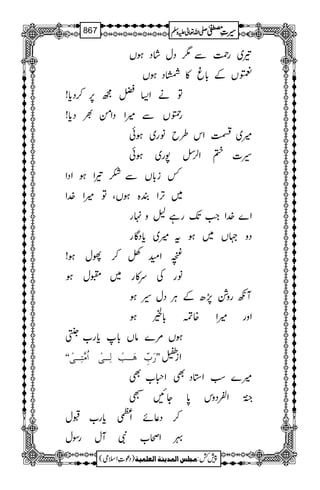 سیرتِ مصطفیٰ صلی اللہ تعالیٰ علیہ وسلم 867
تیری رحمت سے مگر دل شاد ہوں
نعمتوں کے باغ کا شمشاد ہوں
تو نے ایسا فضل مجھ پر کردیا!
رحمتوں سے میرا دامن بھر دیا!
میری قسمت اس طرح نوری ہوئی
سیرت ختم الرسل پوری ہوئی
کس زباں سے شکر تیرا ہو ادا
میں ترا بندہ ہوں، تو میرا خدا
اے خدا جب تک رہے لیل و نہار
دو جہاں میں ہو یہ میری یادگار
غنچہ امید کھل کر پھول ہو!
نور کی سرکار میں مقبول ہو
آنکھ روشن پڑھ کے ہر دل سیر ہو
اور میرا خاتمہ بالخیر ہو
ہوں مرے ماں باپ یارب جنتی
از طفیل "رَبِّ ھَبْ لِیْ اُمَّتِیْ"
میرے سب استاد بھی احباب بھی
جنۃ الفردوس پا جائیں سبھی
کر دعائے اعظمی یارب قبول
بہر اصحاب نبی آل رسول
پیش کش: مجلس المدينة العلمية (دعوتِ اسلامی)